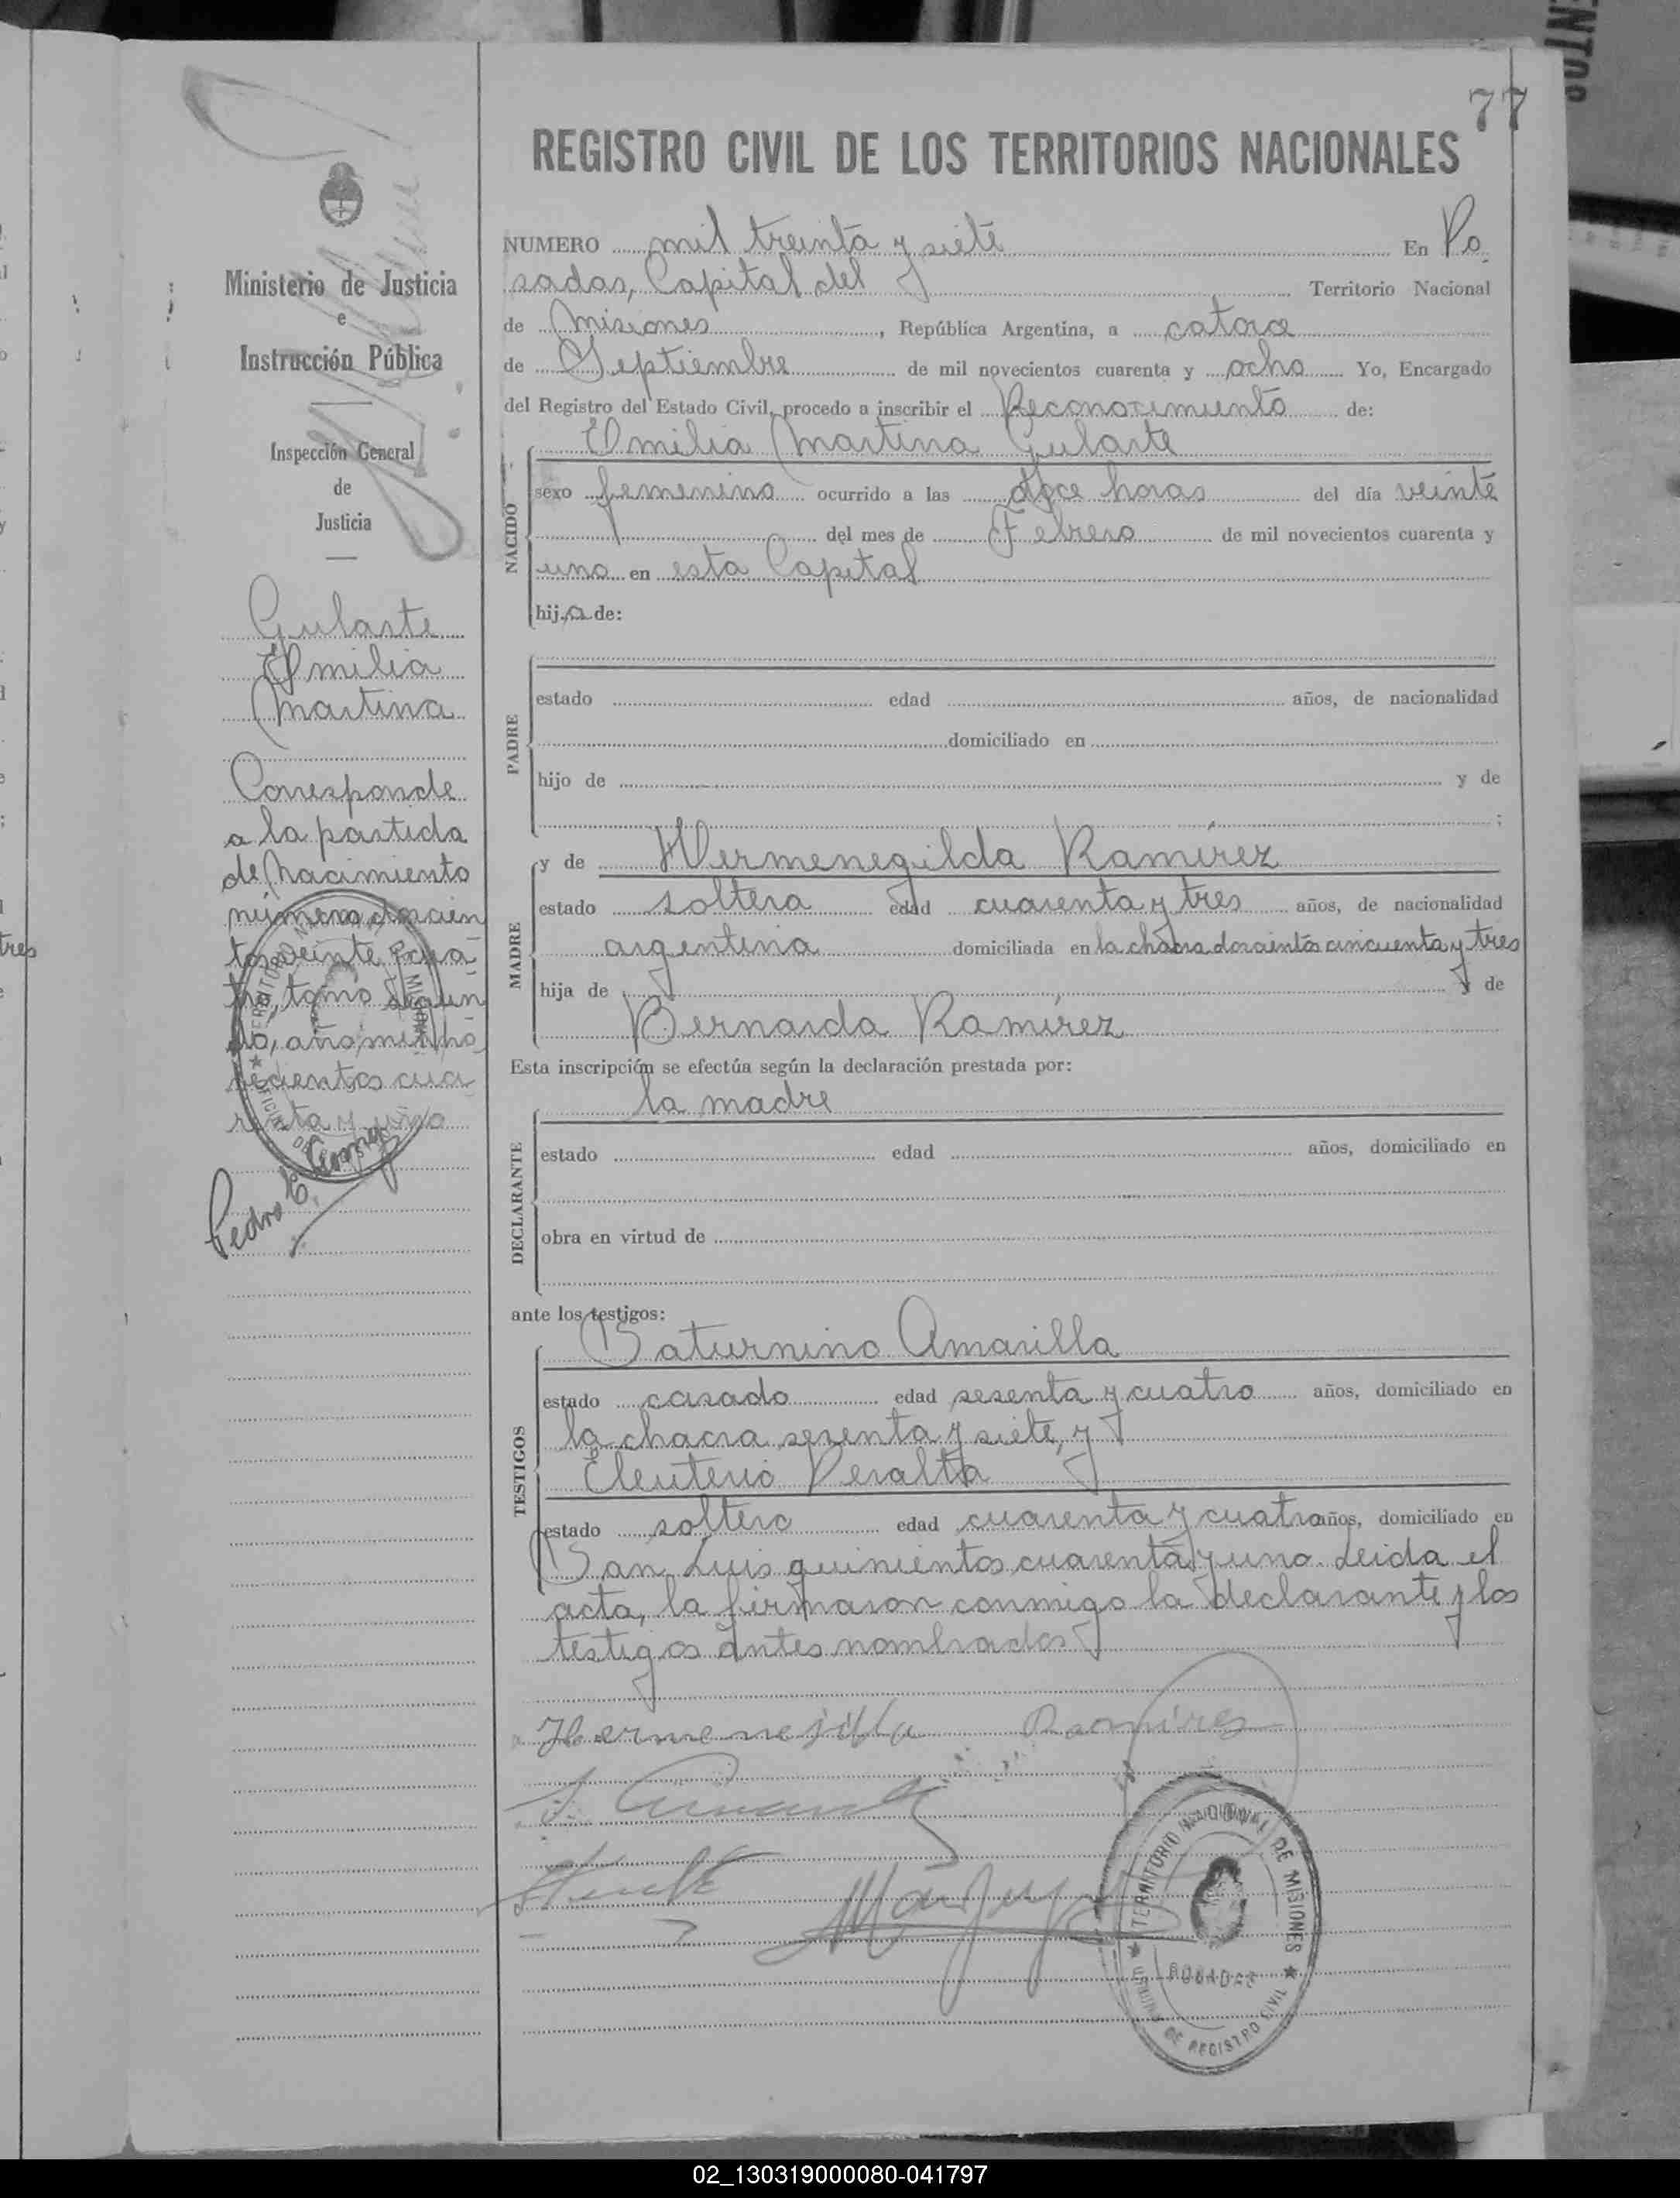 77
REGISTRO CIVIL DE LOS TERRITORIOS NACIONALES
NUMERO mil treinta y siete En Po
sadas, Capital del Territorio Nacional
de Misiones, República Argentina, a catorce
de Septiembre de mil novecientos cuarenta y ocho Yo, Encargado
del Registro del Estado Civil, procedo a inscribir el Reconocimiento de:
Emilia Martina Gularte
NACIDO
sexo femenino ocurrido a las doce horas del día veinte
del mes de Febrero de mil novecientos cuarenta y
uno en esta Capital
hija de:
PADRE
estado edad años, de nacionalidad
domiciliado en
hijo de y de
;
MADRE
y de Hermenegilda Ramírez
estado soltera edad cuarenta y tres años, de nacionalidad
argentina domiciliada en la chacra doscientos cincuenta y tres
hija de y de
Bernarda Ramírez
Esta inscripción se efectúa según la declaración prestada por:
la madre
DECLARANTE
estado edad años, domiciliado en
obra en virtud de
ante los testigos:
TESTIGOS
Saturnino Amarilla
estado casado edad sesenta y cuatro años, domiciliado en
la chacra sesenta y siete, y
Eleuterio Peralta
estado soltero edad cuarenta y cuatro años, domiciliado en
San Luis quinientos cuarenta y uno. Leida el
acta, la firmaron conmigo la declarante y los
testigos antes nombrados
Hermenejilda Ramires
TERRITORIO NACIONAL DE MISIONES
POSADAS
OFICINA DE REGISTRO CIVIL
Ministerio de Justicia
e
Instrucción Pública
Inspección General
de
Justicia
Gularte
Emilia
Martina
Corresponde
a la partida
de Nacimiento
número doscien
tos veinte y cua
tro, tomo segun
do, año mil no
vecientos cua
renta y uno
Pedro E.
ENTOS
tres
02_130319000080-041797